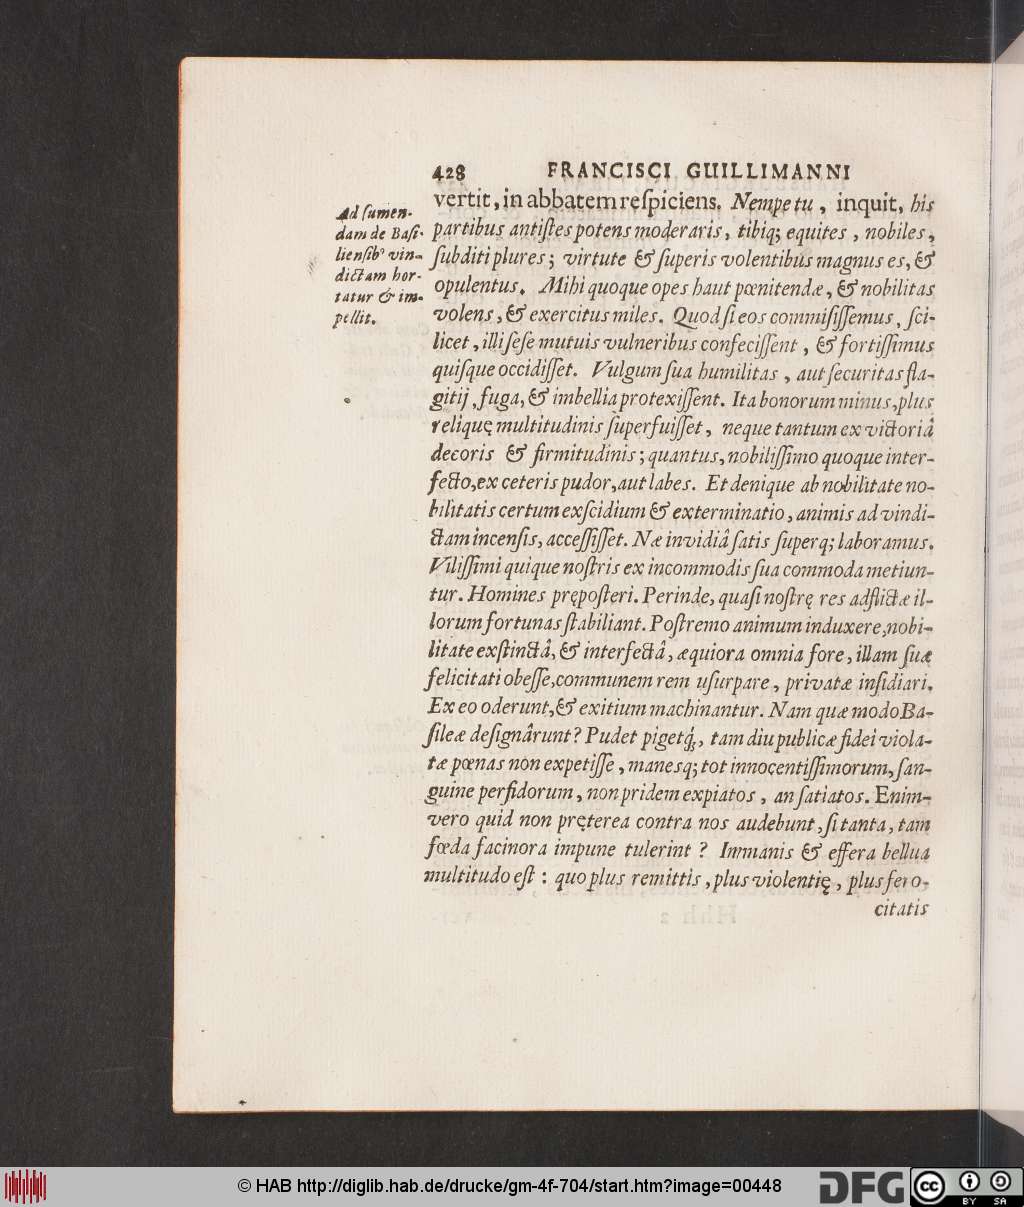 428 FRANCISCI GUILLIMANNI
Ad ſumen-
dam de Baſi-
lienſibꝰ vin-
dictam hor-
tatur & im-
pellit.
vertit, in abbatem reſpiciens. Nempe tu, inquit, his
partibus antiſtes potens moderaris, tibiq; equites, nobiles,
ſubditi plures; virtute & ſuperis volentibus magnus es, &
opulentus. Mihi quoque opes haut pœnitendæ, & nobilitas
volens, & exercitus miles. Quod ſi eos commiſiſſemus, ſci-
licet, illi ſeſe mutuis vulneribus confeciſſent, & fortiſſimus
quiſque occidiſſet. Vulgum ſua humilitas, aut ſecuritas fla-
gitij, fuga, & imbellia protexiſſent. Ita bonorum minus, plus
reliquę multitudinis ſuperfuiſſet, neque tantum ex victoriâ
decoris & firmitudinis; quantus, nobiliſſimo quoque inter-
fecto, ex ceteris pudor, aut labes. Et denique ab nobilitate no-
bilitatis certum exſcidium & exterminatio, animis ad vindi-
ctam incenſis, acceſſiſſet. Næ invidiâ ſatis ſuperq; laboramus.
Viliſſimi quique noſtris ex incommodis ſua commoda metiun-
tur. Homines prępoſteri. Perinde, quaſi noſtrę res adflictæ il-
lorum fortunas ſtabiliant. Poſtremo animum induxere, nobi-
litate exſtinctâ, & interfectâ, æquiora omnia fore, illam ſuæ
felicitati obeſſe, communem rem uſurpare, privatæ inſidiari.
Ex eo oderunt, & exitium machinantur. Nam quæ modo Ba-
ſileæ deſignârunt? Pudet pigetq́;, tam diu publicæ fidei viola-
tæ pœnas non expetiſſe, manesq; tot innocentiſſimorum, ſan-
guine perfidorum, non pridem expiatos, an ſatiatos. Enim-
vero quid non pręterea contra nos audebunt, ſi tanta, tam
fœda facinora impune tulerint? Inmanis & effera bellua
multitudo eſt: quo plus remittis, plus violentię, plus fero-
citatis
© HAB http://diglib.hab.de/drucke/gm-4f-704/start.htm?image=00448
DFG
cc BY SA